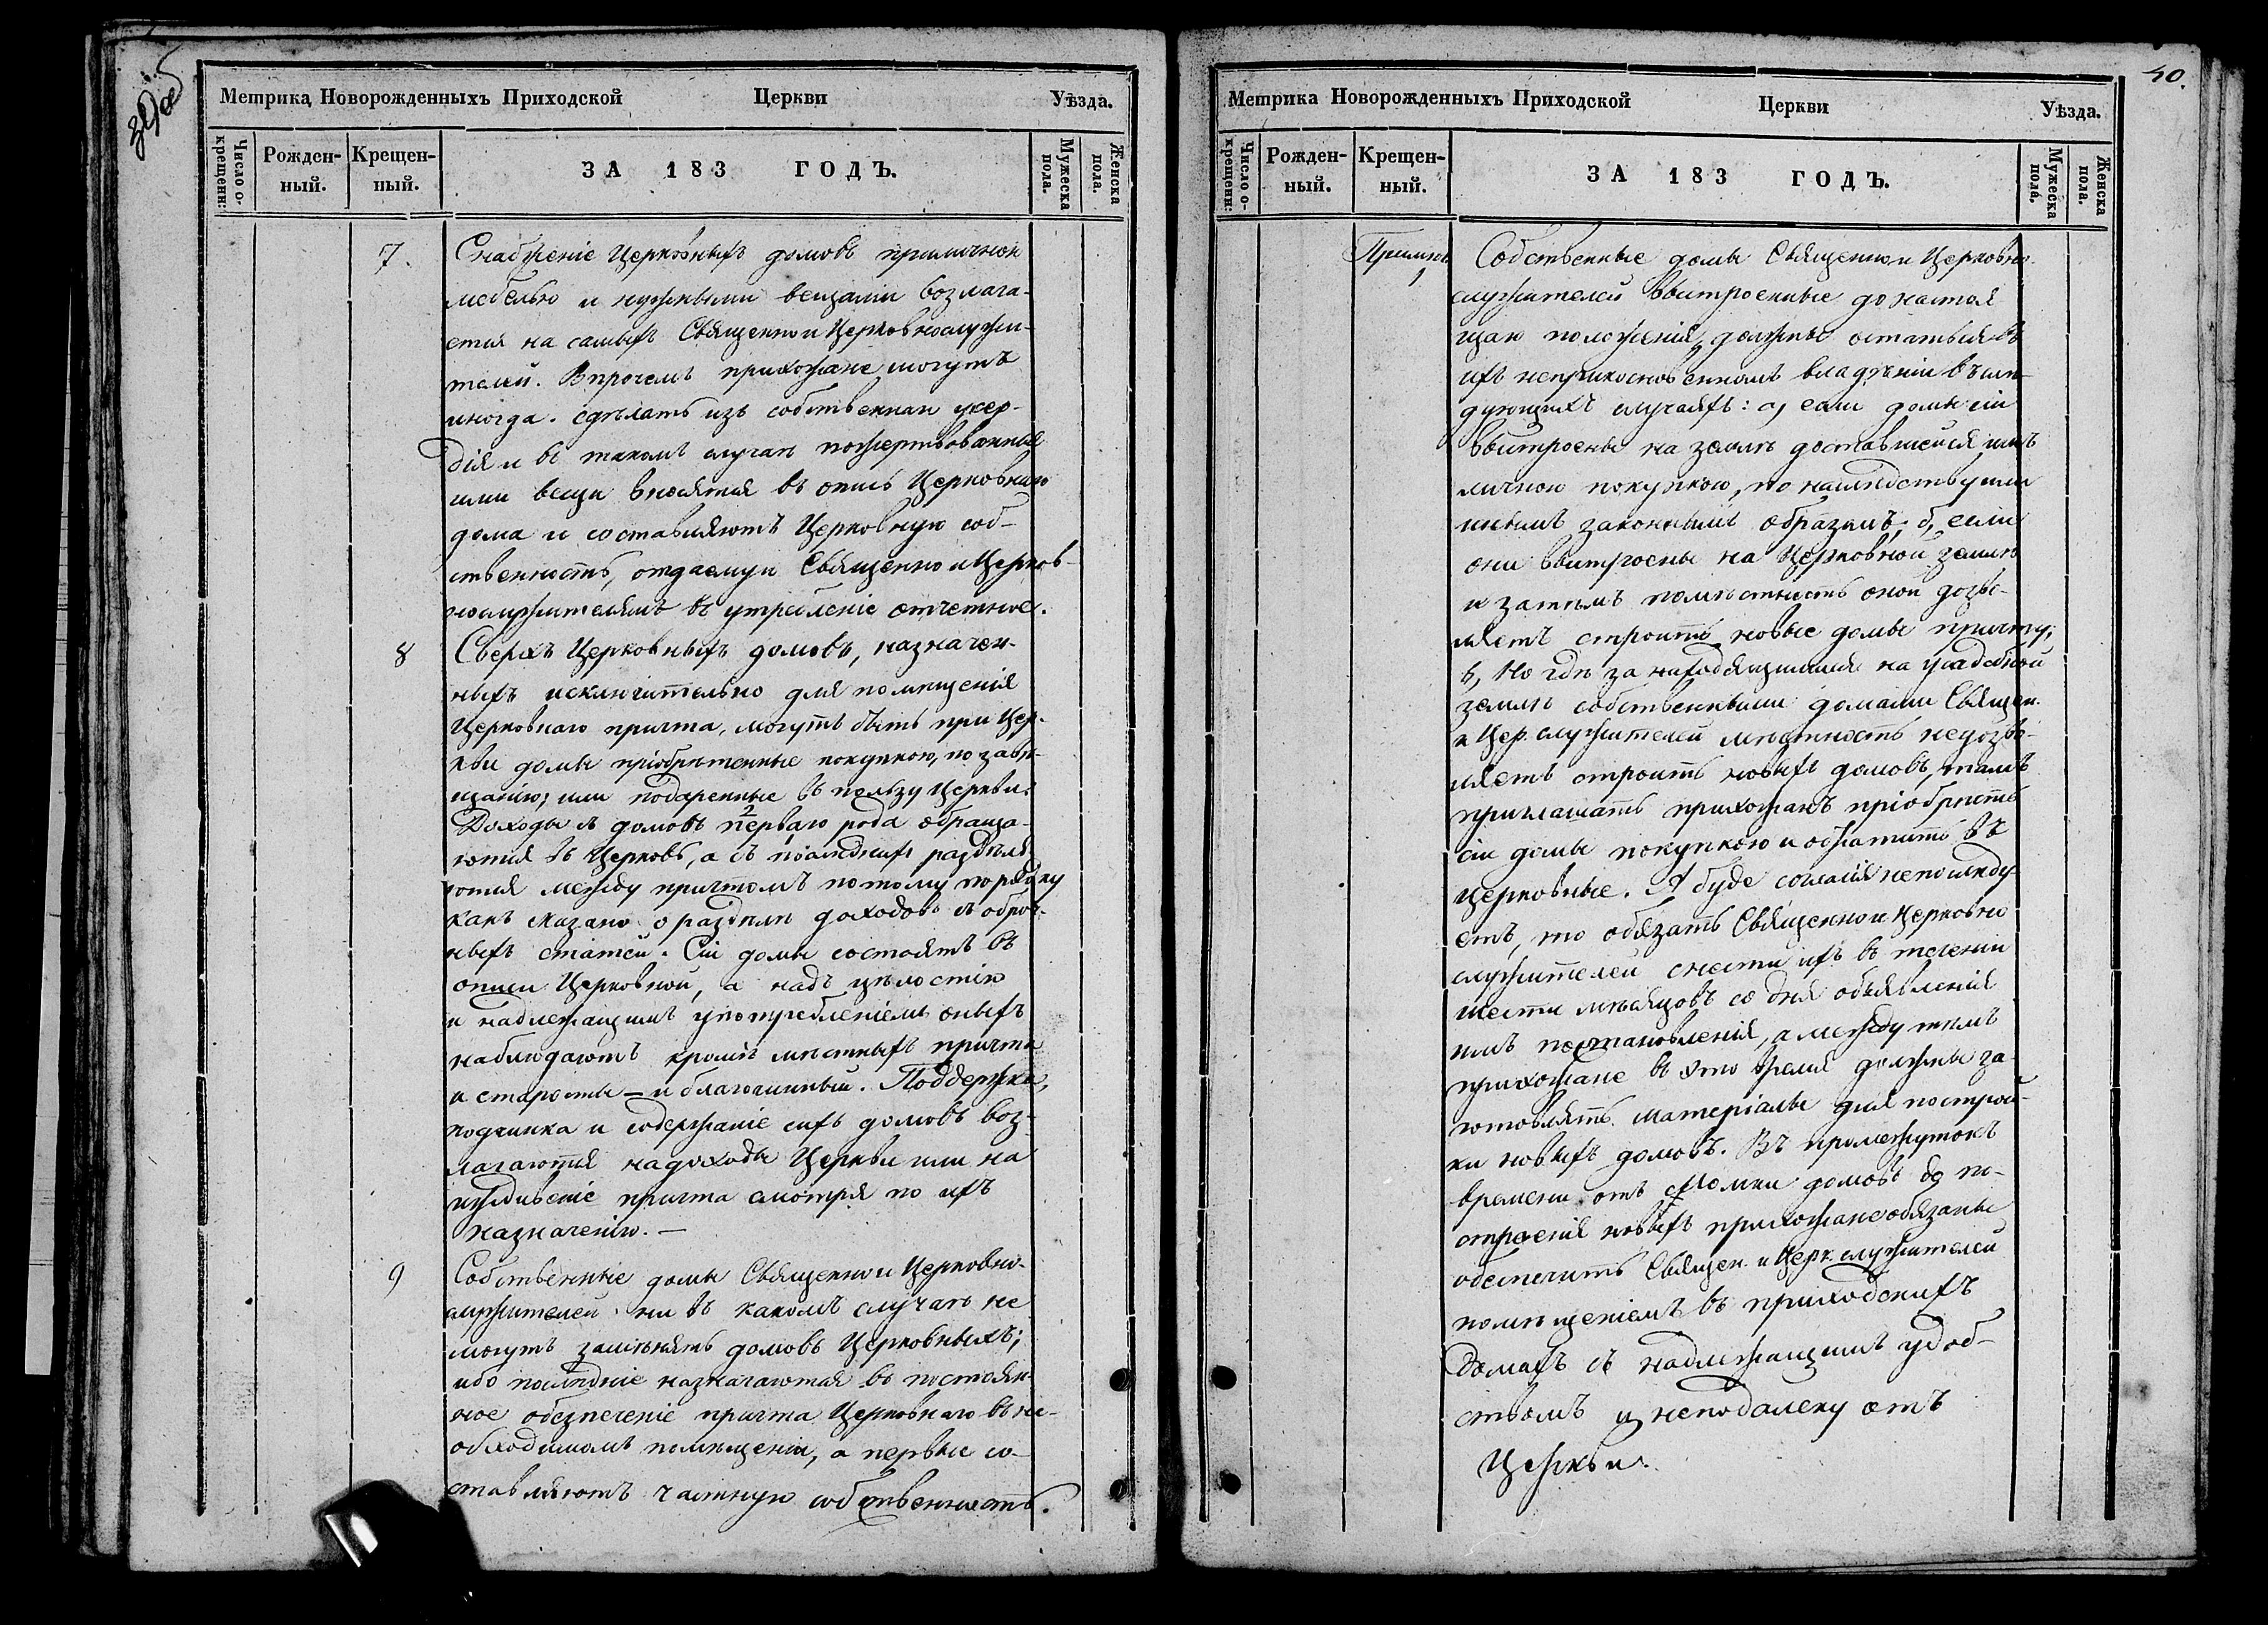 Метрика Новорожденныхъ Приходской Церкви Уѣзда.
Число о-
крещени:
Рожден-
ный.
Крещен-
ный.
ЗА 183 ГОДЪ.
Мужеска
пола.
Женска
пола.
7. Снабженіе Церковныхъ домовъ приличною
мебелью и нужными вещами возлага-
ется на самыхъ Священно и Церковнослужи-
телей. Впрочемъ прихожане могутъ
иногда сдѣлать изъ собственнаго усер-
дія и въ такомъ случаѣ пожертвованныя
ими вещи вносятся въ опись Церковнаго
дома и составляютъ Церковную соб-
ственность, отдаемую Священно и Церков-
нослужителямъ въ утребленіе отчетное.
8 Сверхъ Церковныхъ домовъ, назначен-
ныхъ исключительно для помѣщенія
Церковнаго причта, могутъ быть при Цер-
кви домы пріобрѣтенные покупкою, по завѣ-
щанію; или подаренные въ пользу Церкви.
Доходы съ домовъ перваго рода обраща-
ются въ Церковь, а съ послѣднихъ раздѣля-
ются между причтомъ по тому порядку
какъ сказано о раздѣлѣ доходовъ съ оброч-
ныхъ статей. Сіи домы состоятъ въ
описи Церковной, а надъ цѣлостію
и надлежащимъ употребленіемъ оныхъ
наблюдаютъ кромѣ мѣстныхъ причта
и старосты – и благочинный. Поддержка,
починка и содержаніе сихъ домовъ воз-
лагаются на доходы Церкви или на
иждивеніе причта смотря по ихъ
назначенію. –
9 Собственные домы Священно и Церковно-
служителей ни въ какомъ случаѣ не
могутъ замѣнять домовъ Церковныхъ;
ибо послѣдніе назначаются въ постоян-
ное обезпеченіе причта Церковнаго въ не-
обходимомъ помѣщеніи, а первые со-
ставляютъ частную собственность.
40.
Метрика Новорожденныхъ Приходской Церкви Уѣзда.
Число о-
крещени:
Рожден-
ный.
Крещен-
ный.
ЗА 183 ГОДЪ.
Мужеска
пола.
Женска
пола.
Собственные домы Священно и Церковно-
служителей выстроенные до настоя-
щаго положенія, должны остаться въ
ихъ неприкосновенномъ владѣніи въ слѣ-
дующихъ случаяхъ: а, если домы сіи
выстроены на землѣ доставшейся имъ
личною покупкою, по наслѣдству или
инымъ законнымъ образомъ; б, если
они выстроены на Церковной землѣ
и затѣмъ помѣстность оной дозво-
ляетъ строить новые домы причту;
в, Но гдѣ за находящимися на усадебной
землѣ собственными домами Священ.
и Цер. служителей мѣстность недозво-
ляетъ строить новыхъ домовъ, тамъ
приглашать прихожанъ пріобрѣсть
сіи домы покупкою и обратить въ
церковные. А буде согласія непослѣду-
етъ, то обязать Священно и Церковно
служителей снести ихъ въ теченіи
шести мѣсяцовъ со дня объявленія
имъ постановленія, а между тѣмъ
прихожане въ это время должны за-
готовлять матеріалы для построй-
ки новыхъ домовъ. Въ промежутокъ
времени отъ сломки домовъ до по-
строенія новыхъ прихожане обязаны
обеспечить Священ. и Церк. служителей
помѣщеніемъ въ приходскихъ
домахъ съ надлежащимъ удоб-
ствомъ и неподалеку отъ
Церкви.